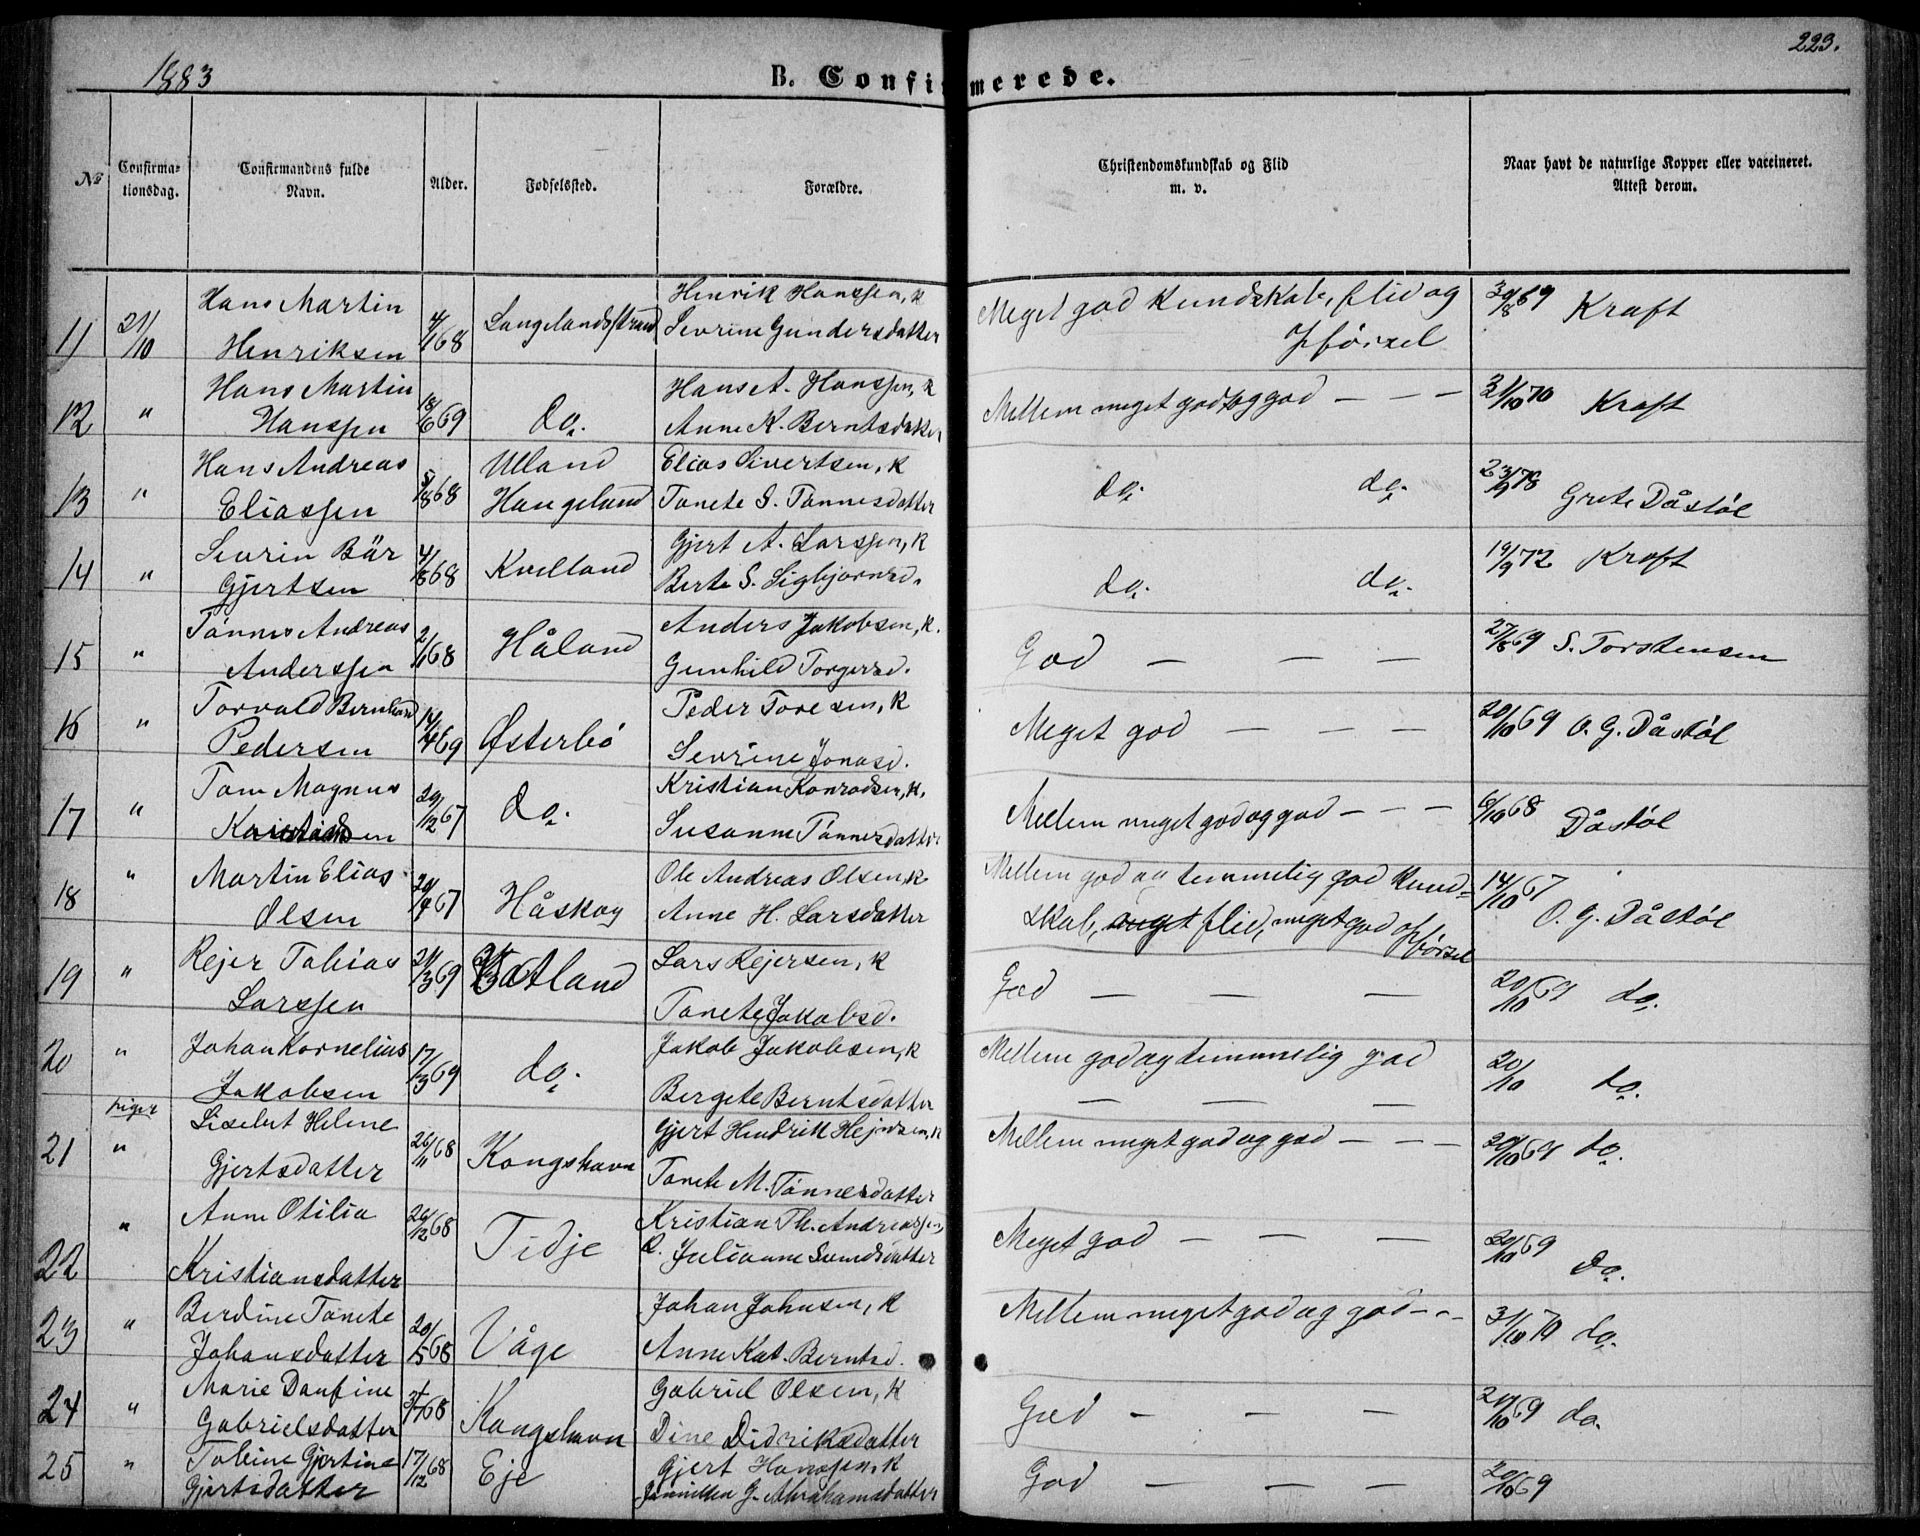 1883
B. Confirmerede.
223.
No
Confirma-
tionsdag.
Confirmandens fulde
Navn.
Alder.
Fødselssted.
Forældre.
Christendomskundskab og Flid
m. v.
Naar havt de naturlige Kopper eller vaccineret.
Attest derom.
11 21/10 Hans Martin Henriksen 4/1 68 Langelandsstrand Henrik Hanssen, K Sevrine Gundersdatter Meget god Kundskab, flid og Opførsel 30/8 69 Kraft
12 " Hans Martin Hanssen 18/6 69 do. Hans A. Hanssen, K Anne K. Berntsdatter Mellem meget god og god — — — 31/10 70 Kraft
13 " Hans Andreas Eliassen 5/8 68 Ulland Haugeland Elias Sivertsen, K Tonete S. Tønnesdatter do. do. 23/9 78 Grete Dåstøl
14 " Sevrin Bär Gjertsen 4/8 68 Kvelland Gjert A. Larssen, K Berte S. Sigbjørnsd. do. do. 19/9 72 Kraft
15 " Tønnes Andreas Anderssen 2/1 68 Håland Anders Jakobsen, K. Gunhild Torgersd. God — — — 27/8 69 S. Torstensen
16 " Torvald Bernhard Pedersen 14/4 69 Østerbø Peder Toresen, K Sevrine Jonasd. Meget god — — — 20/10 69 O. G. Dåstøl
17 " Tom Magnus 29/12 67 do. Kristian Konradsen, K. Susanne Tønnesdatter Mellem meget god og god — — — 6/10 68 Dåstøl
18 " Martin Elias Olsen 20/4 67 Håskog Ole Andreas Olsen, K Anne H. Larsdatter Mellem god og temmelig god Kund-
skab, meget flid, meget god opførsel 14/10 67 O. G. Dåstøl
19 " Rejer Tobias Larssen 21/3 69 Vatland Lars Rejersen, K Tonete Jakobsd. God — — — 20/10 69 do.
20 " Johan Kornelius Jakobsen 17/3 69 do. Jakob Jakobsen, K Bergete Berntsdatter Mellem god og temmelig god — — — 20/10 do.
piger
21 " Liselet Helene Gjertsdatter 26/11 68 Kongshavn Gjert Hendrik K Tonete M. Tønnesdatter Mellem meget god og god — — — 20/10 69 do.
22 " Anne Otilia Kristiansdatter 26/12 68 Tidje Kristian Th. Andreassen, K. Julianne Svendsdatter Meget god — — — 20/10 69 do.
23 " Berdine Tonete Johansdatter 20/5 68 Våge Johan Johnsen, K Anne Kat. Berntsd. Mellem meget god og god — — 31/10 70 do.
24 " Marie Daufine Gabrielsdatter 68 Kongshavn Gabriel Olsen, K Dine Didriksdatter God — — — 20/10 69 do.
25 " Tobine Gjertine Gjertsdatter 17/12 68 Eje Gjert Hanssen, K G. Abrahamsdatter God — — — 20/10 69